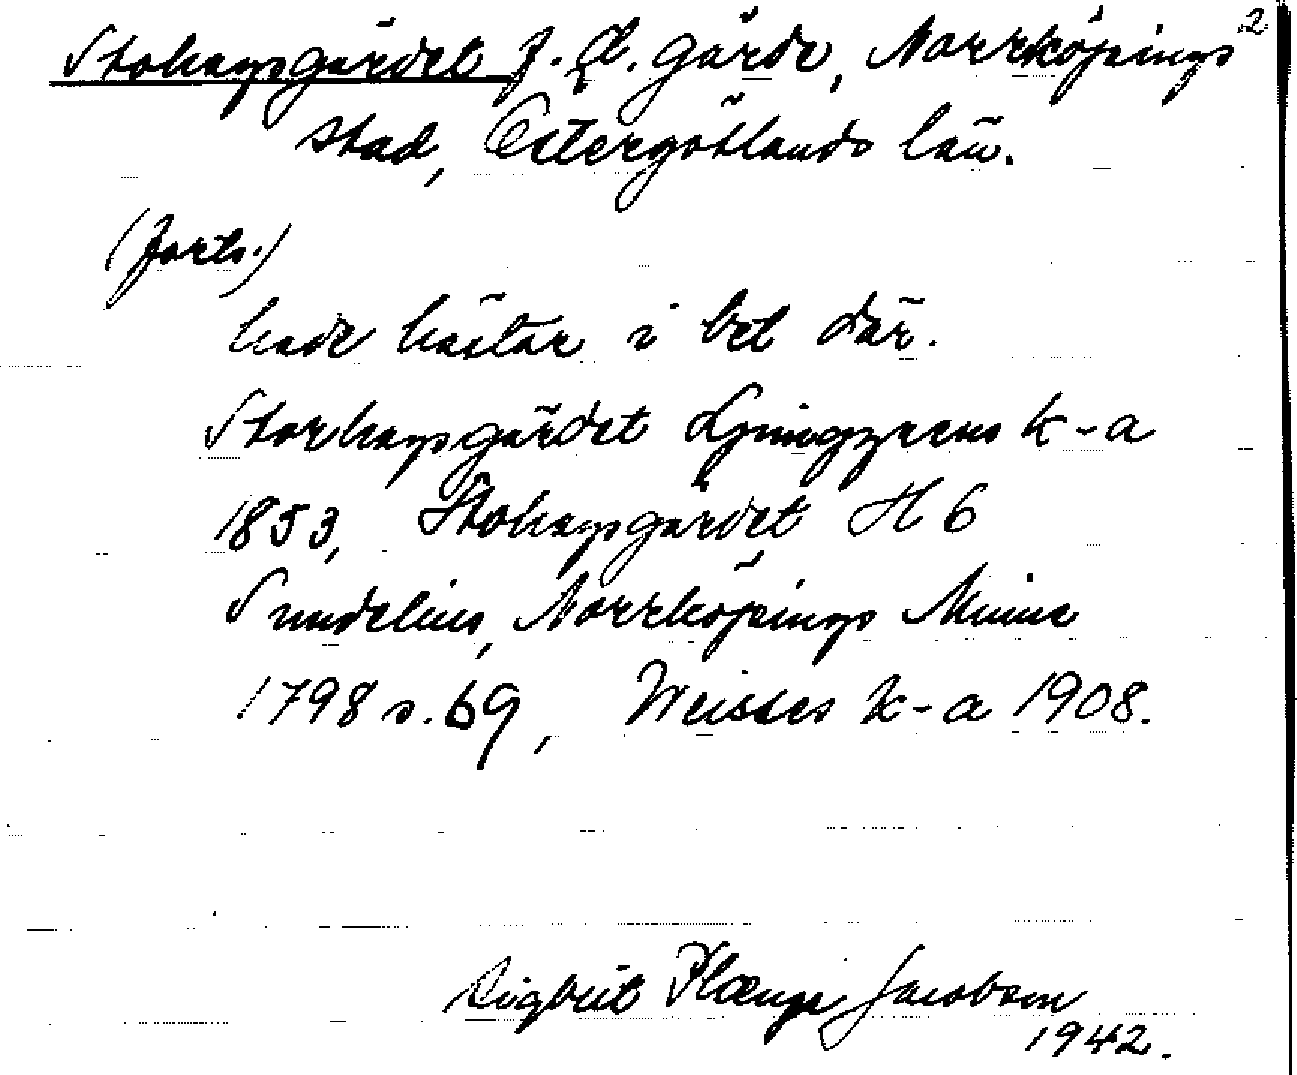 Stohagsgärdet f. d. gärde, Norrköpings 2
stad, Östergötlands län.
(forts.)
hade hästar i bet där.
Storhagsgärdet Ljunggrens k-a
1853, Stohagsgärdet H 6
Sundelius, Norrköpings Minne
1798 s. 69, Weisses k-a 1908.
Sigbrit Plænge Jacobson
1942.